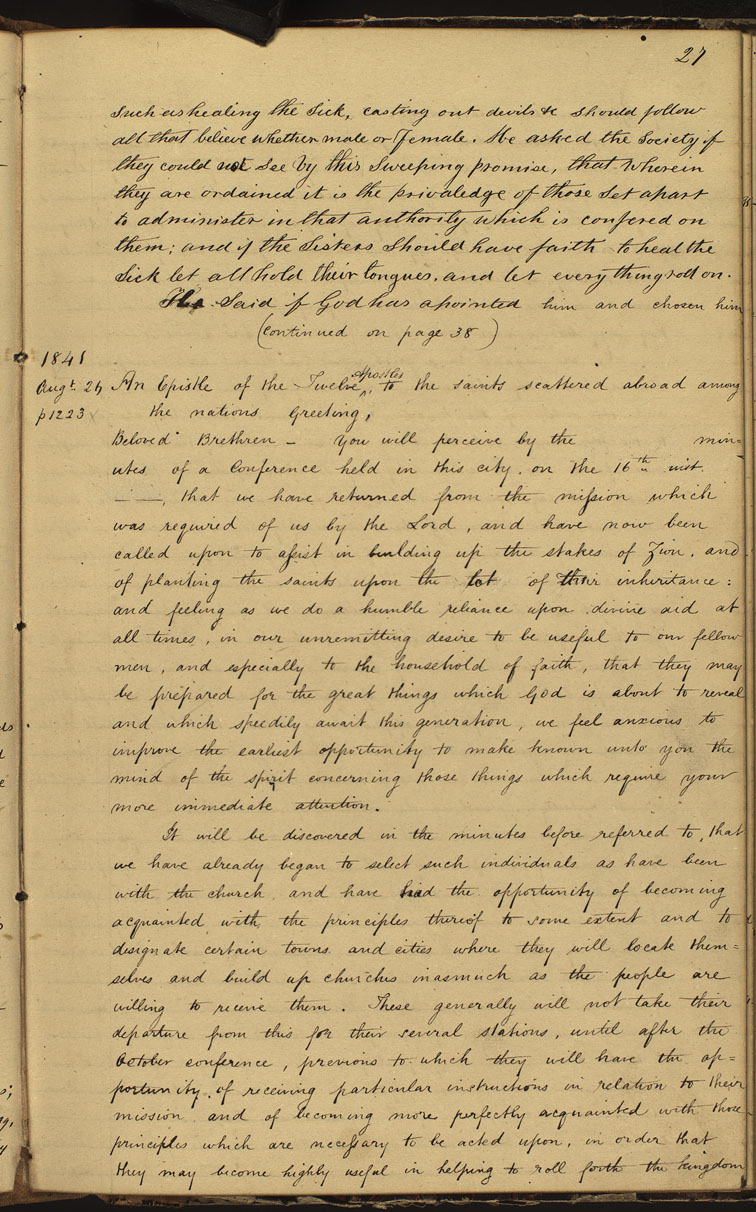 27
such as healing the sick, casting out devils &c should follow
all that believe whether male or Female. He asked the Society if
they could not see by this sweeping promise, that wherein
they are ordained it is the privaledge of those set apart
to administer in that authority which is confered on
them; and if the Sisters should have faith to heal the
Sick let all hold their tongues, and let every thing roll on.
He Said if God has apointed him and chosen him
(continued on page 38)
1841
Augt. 26 An Epistle of the Twelve Apostles, to the saints scattered abroad among
p 1223 the nations Greeting,
Beloved Brethren – You will perceive by the min=
utes of a Conference held in this city, on the 16th inst.
, that we have returned from the mission which
was required of us by the Lord, and have now been
called upon to assist in building up the stakes of Zion, and
of planting the saints upon the lot of their inheritance:
and feeling as we do a humble reliance upon divine aid at
all times, in our unremitting desire to be useful to our fellow
men, and especially to the household of faith, that they may
be prepared for the great things which God is about to reveal
and which speedily await this generation, we feel anxious to
improve the earliest opportunity to make known unto you the
mind of the spirit concerning those things which require your
more immediate attention.
It will be discovered in the minutes before referred to, that
we have already began to select such individuals as have been
with the church, and have had the opportunity of becoming
acquainted with the principles thereof to some extent and to
designate certain towns and cities where they will locate them=
selves and build up churches inasmuch as the people are
willing to receive them. These generally will not take their
departure from this for their several stations, until after the
October conference, previous to which they will have the op=
portunity of receiving particular instructions in relation to their
mission and of becoming more perfectly acquainted with those
principles which are necessary to be acted upon, in order that
they may become highly useful in helping to roll forth the kingdom